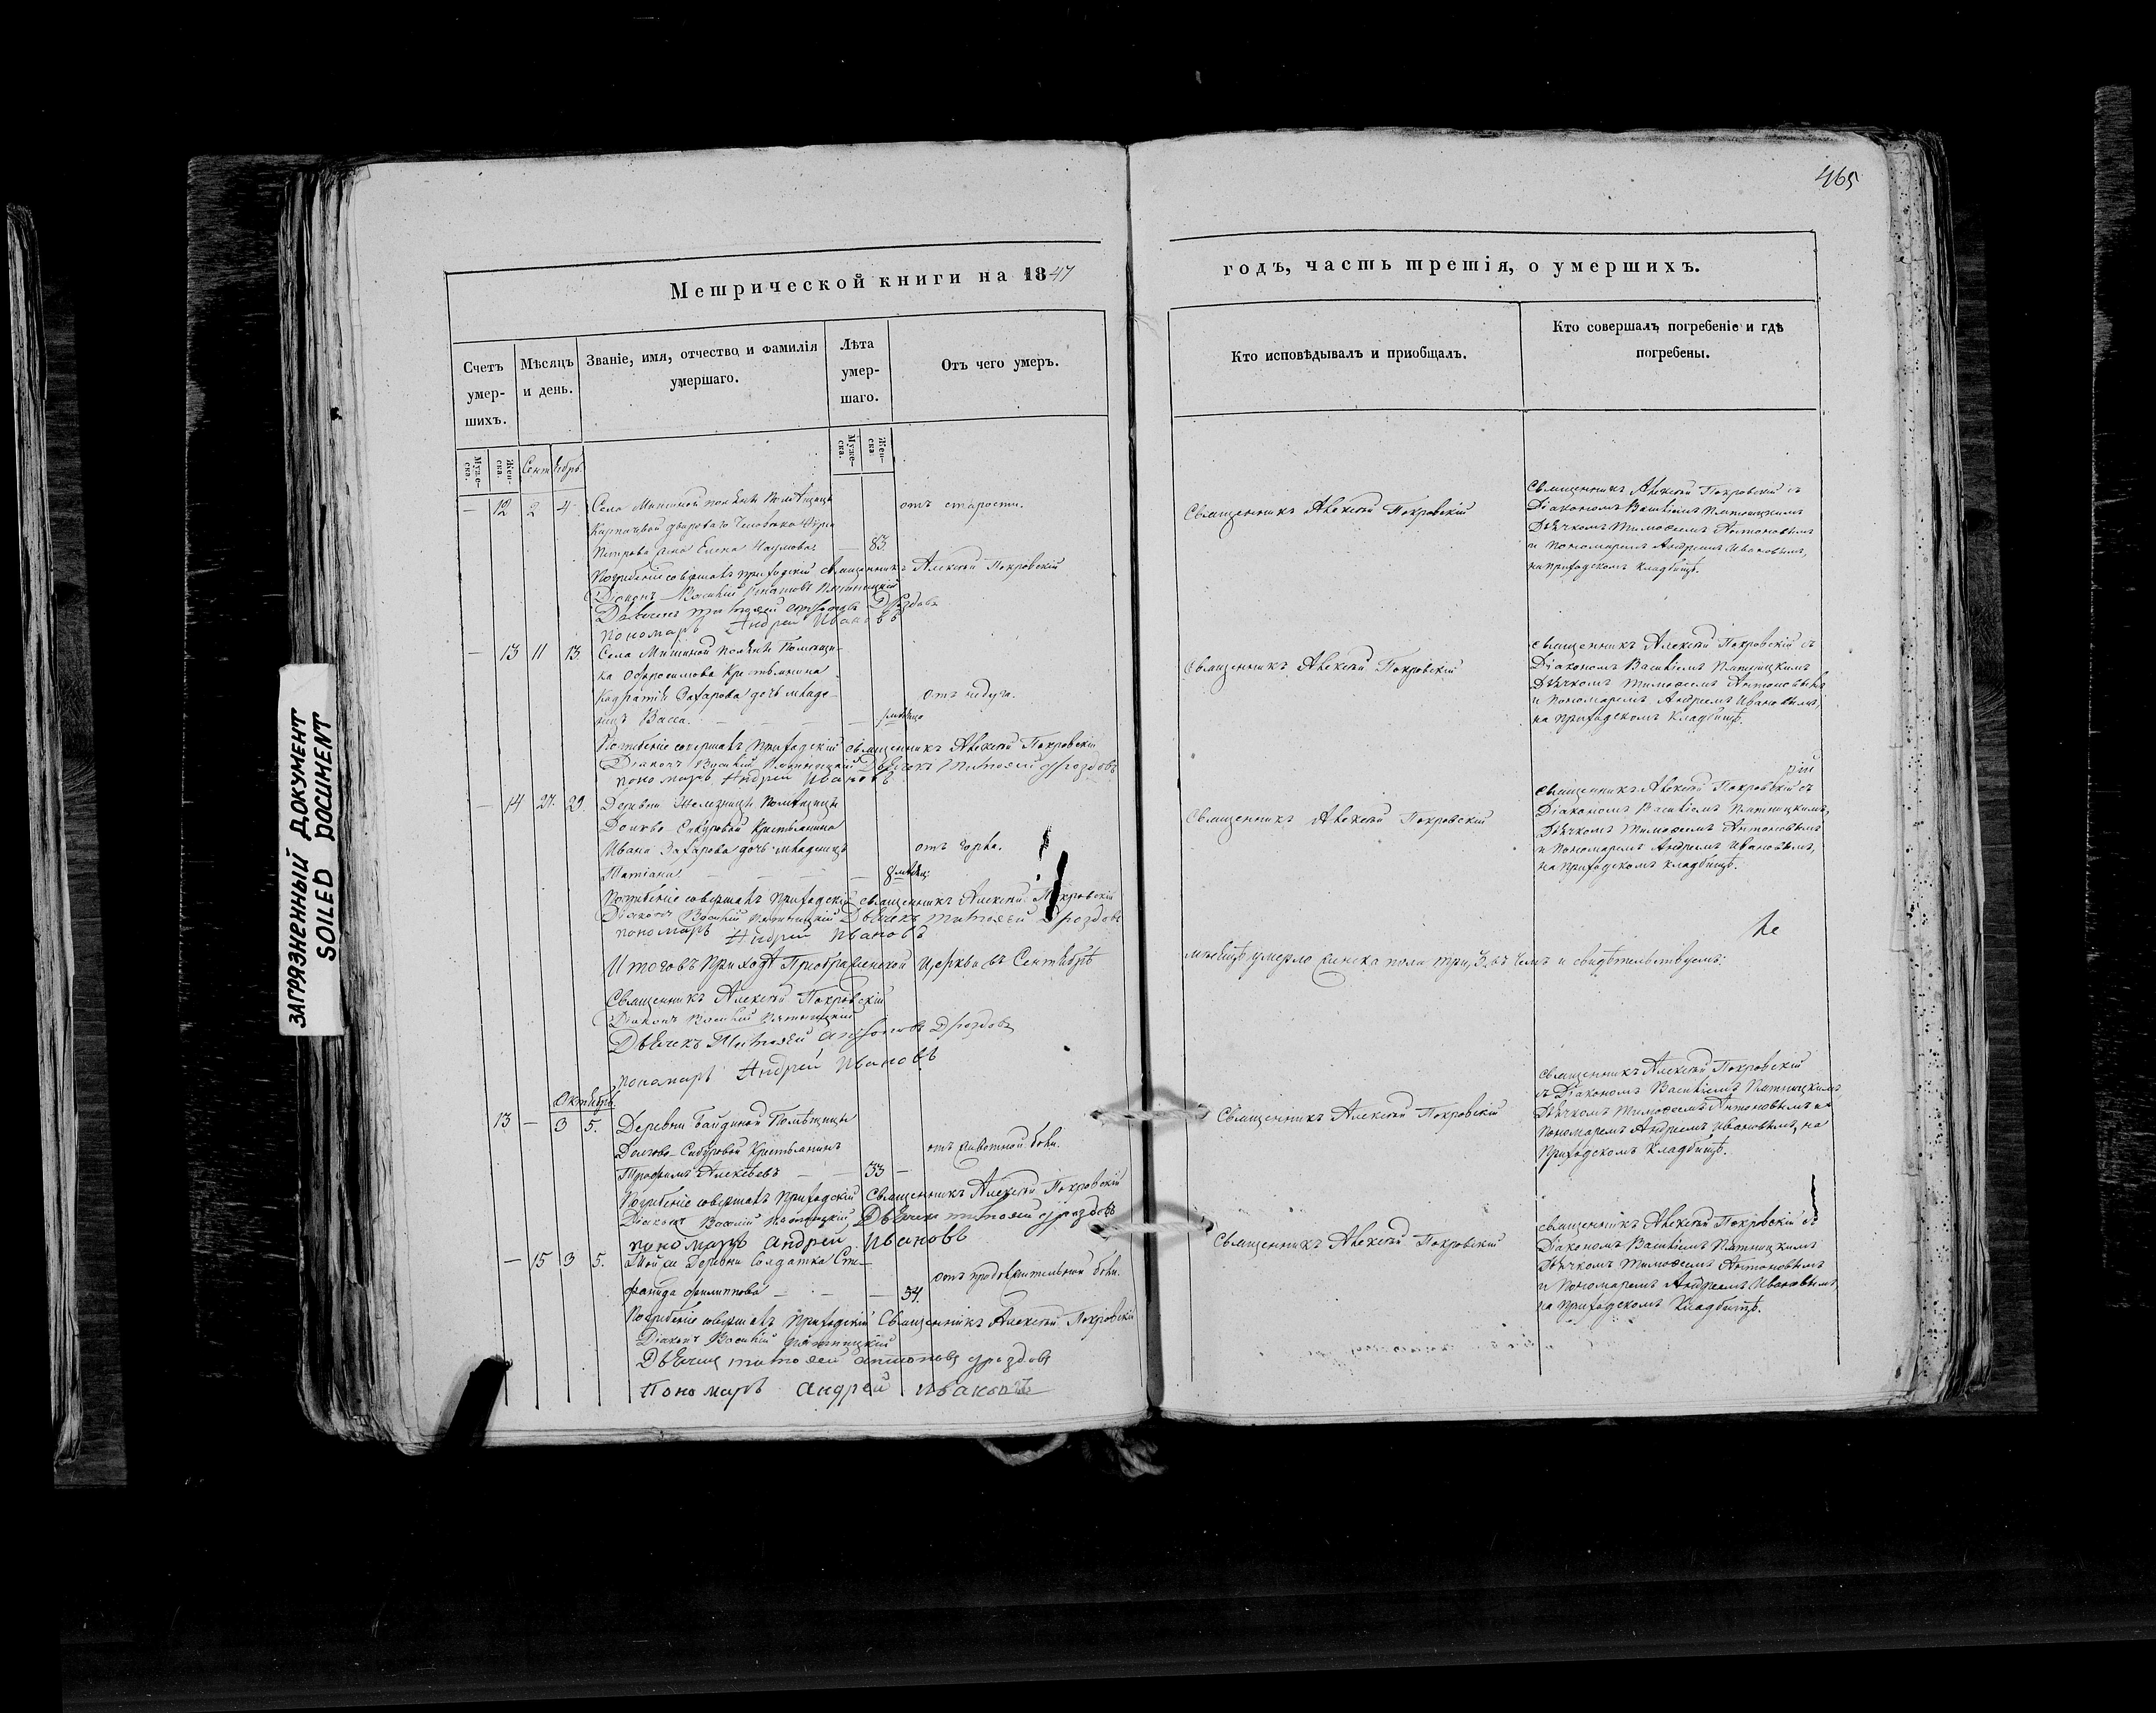 465
ЗАГРЯЗНЕННЫЙ ДОКУМЕНТ
SOILED DOCUMENT
Метрической книги на 1847
годъ, часть третія, о умершихъ.
Счетъ умер-шихъ.
Мѣсяцъ и день.
Званіе, имя, отчество, и фамилія умершаго.
Лѣта умер-шаго.
Отъ чего умеръ.
Кто исповѣдывалъ и пріобщалъ.
Кто совершалъ погребеніе и гдѣ погребены.
Муже-ска.
Жен-ска.
Сентябрь.
Муже-ска.
Жен-ска.
— 12 2 4
Села Мишиной поляны Помѣщицы
двороваго Человѣка
Петрова жена Елена Наумова — 83.
отъ старости.
Священникъ Алексѣй Покровскій
Священникъ Алексѣй Покровскій съ
Діакономъ Василіемъ Пятницкимъ
Дьячкомъ Тимофеемъ Антоновымъ
и Пономаремъ Андреемъ Ивановымъ,
на приходскомъ кладбищѣ.
Погребеніе совершалъ приходскій священникъ Алексѣй Покровскій
Діаконъ Василій Пятницкій
Дьячекъ Тимофей Антоновъ Дроздовъ
Пономарь Андрей Ивановъ
— 13 11 13.
Села Мишиной Поляны Помѣщи-
ка Офросимова Крестьянина
Захарова дочь младе-
нецъ Васса. — — —
отъ недуга.
Священникъ Алексѣй Покровскій
Священникъ Алексѣй Покровскій съ
Діакономъ Василіемъ Пятницкимъ
Дьячкомъ Тимофеемъ Антоновымъ
и Пономаремъ Андреемъ Ивановымъ,
на Приходскомъ Кладбищѣ.
Погребеніе совершалъ Приходскій священникъ Алексѣй Покровскій
Діаконъ Василій Пятницкій Дьячекъ Тимофей Дроздовъ
пономарь Андрей Ивановъ
— 14 27. 29.
Деревни Помѣщицы
Долгово-Сабуровой Крестьянина
Ивана Захарова дочь младенецъ
Татіана. — — —
8 мѣсяц.
отъ горла.
Священникъ Алексѣй Покровскій
Священникъ Алексѣй Покровскій съ
Діакономъ Василіемъ Пятницкимъ,
Дьячкомъ Тимофеемъ Антоновымъ
и Пономаремъ Андреемъ Ивановымъ,
на Приходскомъ кладбищѣ.
Погребеніе совершалъ Приходскій священникъ Алексѣй Покровскій
Діаконъ Василій Пятницкій Дьячекъ Тимофей Дроздовъ
пономарь Андрей Ивановъ
Итого въ Приходѣ Преображенской Церкви въ Сентябрѣ
мѣсяцѣ умерло женска пола три, 3. въ чемъ и свидѣтельствуемъ:
Священникъ Алексѣй Покровскій
Діаконъ Василій Пятницкій
Дьячекъ Тимофей Антоновъ Дроздовъ
пономарь Андрей Ивановъ
Октябрь.
13 — 3 5.
Деревни Байдиной Помѣщицы
Долгово-Сабуровой Крестьянинъ
Трофимъ Алексѣевъ — — 33 —
отъ животной боли.
Священникъ Алексѣй Покровскій
Священникъ Алексѣй Покровскій
съ Діакономъ Василіемъ Пятницкимъ,
Дьячкомъ Тимофеемъ Антоновымъ и
Пономаремъ Андреемъ Ивановымъ, на
Приходскомъ Кладбищѣ.
Погребеніе совершалъ Приходскій Священникъ Алексѣй Покровскій
Діаконъ Василій Пятницкій, Дьячекъ Тимофей Дроздовъ
пономарь Андрей Ивановъ
— 15 3 5.
Той же Деревни Солдатка Сте-
фанида Филиппова — — 54.
отъ продолжительной боли.
Священникъ Алексѣй Покровскій
Священникъ Алексѣй Покровскій съ
Діакономъ Василіемъ Пятницкимъ
Дьячкомъ Тимофеемъ Антоновымъ
и Пономаремъ Андреемъ Ивановымъ,
на Приходскомъ Кладбищѣ.
Погребеніе совершалъ Приходскій Священникъ Алексѣй Покровскій
Діаконъ Василій Пятницкій
Дьячекъ Тимофей Антоновъ Дроздовъ
Пономарь Андрей Ивановъ